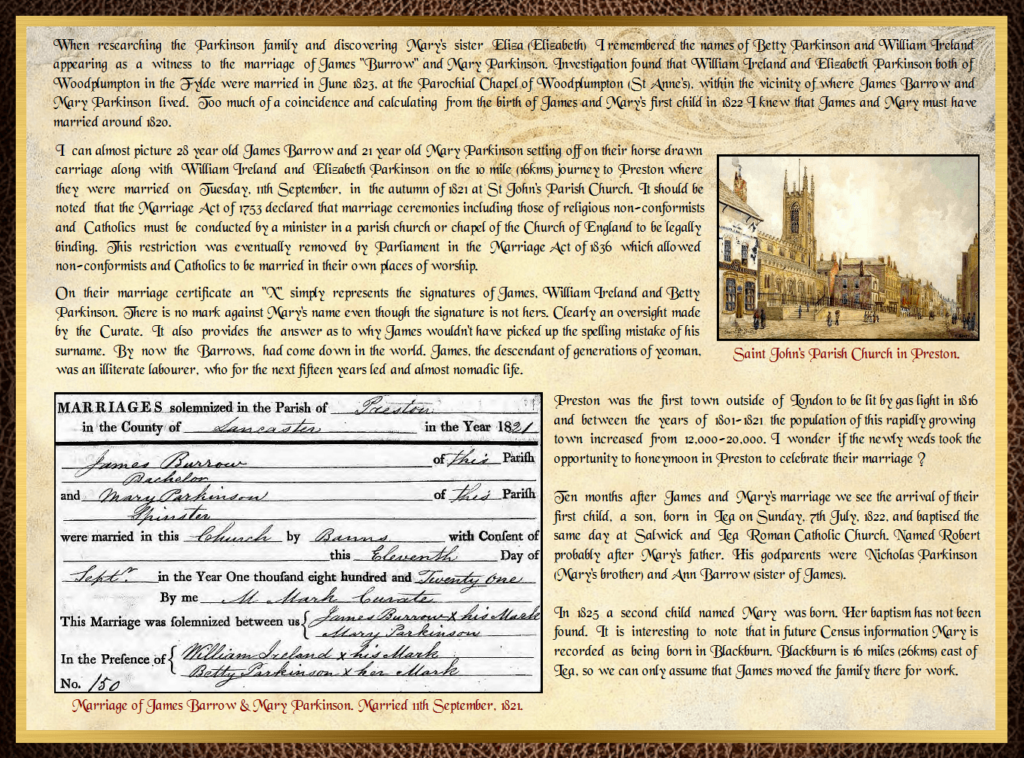 When researching the Parkinson family and discovering Mary's sister Eliza (Elizabeth) I remembered the names of Betty Parkinson and William Ireland
appearing as a witness to the marriage of James "Burrow" and Mary Parkinson. Investigation found that William Ireland and Elizabeth Parkinson both of
Woodplumpton in the Fylde were married in June 1823, at the Parochial Chapel of Woodplumpton (St Anne's), within the vicinity of where James Barrow and
Mary Parkinson lived. Too much of a coincidence and calculating from the birth of James and Mary's first child in 1822 I knew that James and Mary must have
married around 1820.
I can almost picture 28 year old James Barrow and 21 year old Mary Parkinson setting off on their horse drawn
carriage along with William Ireland and Elizabeth Parkinson on the 10 mile (16kms) journey to Preston where
they were married on Tuesday, 11th September, in the autumn of 1821 at St John's Parish Church. It should be
noted that the Marriage Act of 1753 declared that marriage ceremonies including those of religious non-conformists
and Catholics must be conducted by a minister in a parish church or chapel of the Church of England to be legally
binding. This restriction was eventually removed by Parliament in the Marriage Act of 1836 which allowed
non-conformists and Catholics to be married in their own places of worship.
On their marriage certificate an "X" simply represents the signatures of James, William Ireland and Betty
Parkinson. There is no mark against Mary's name even though the signature is not hers. Clearly an oversight made
by the Curate. It also provides the answer as to why James wouldn't have picked up the spelling mistake of his
surname. By now the Barrows, had come down in the world. James, the descendant of generations of yeoman,
was an illiterate labourer, who for the next fifteen years led and almost nomadic life.
Saint John's Parish Church in Preston.
MARRIAGES solemnized in the Parish of Preston
in the County of Lancaster in the Year 1821
James Burrow of this Parish
Bachelor
and Mary Parkinson of this Parish
Spinster
were married in this Church by Banns with Consent of
this Eleventh Day of
Septr in the Year One thousand eight hundred and Twenty one
By me M Mark Curate
This Marriage was solemnized between us { James Burrow x his Mark
Mary Parkinson
In the Presence of { William Ireland x his Mark
Betty Parkinson x her Mark
No. 150
Marriage of James Barrow & Mary Parkinson. Married 11th September, 1821.
Preston was the first town outside of London to be lit by gas light in 1816
and between the years of 1801-1821 the population of this rapidly growing
town increased from 12,000-20,000. I wonder if the newly weds took the
opportunity to honeymoon in Preston to celebrate their marriage ?
Ten months after James and Mary's marriage we see the arrival of their
first child, a son, born in Lea on Sunday, 7th July, 1822, and baptised the
same day at Salwick and Lea Roman Catholic Church. Named Robert
probably after Mary's father. His godparents were Nicholas Parkinson
(Mary's brother) and Ann Barrow (sister of James).
In 1825 a second child named Mary was born. Her baptism has not been
found. It is interesting to note that in future Census information Mary is
recorded as being born in Blackburn. Blackburn is 16 miles (26kms) east of
Lea, so we can only assume that James moved the family there for work.